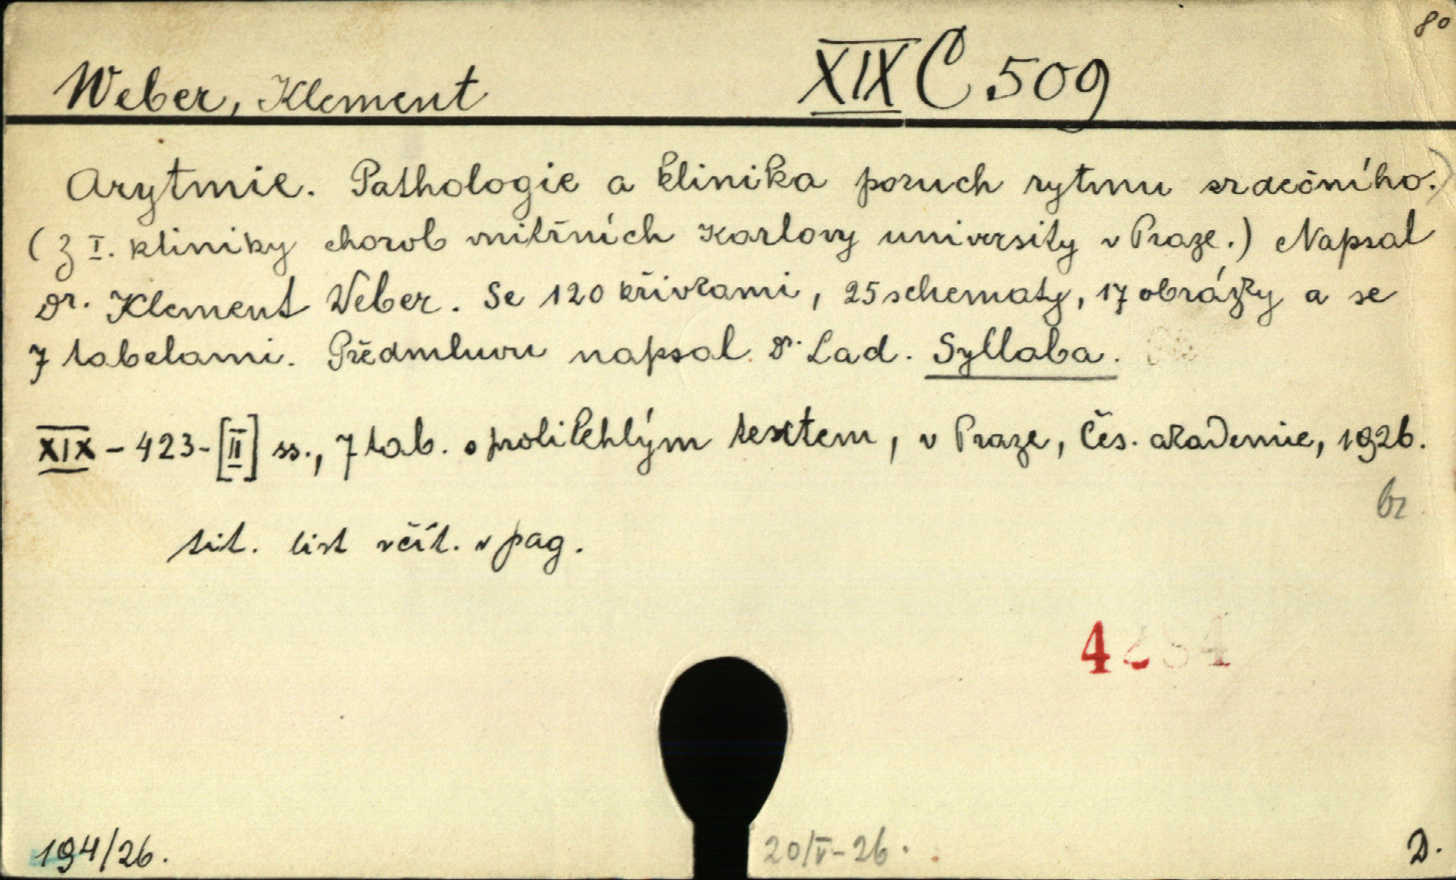 80
Weber, Klement XIX C 509
Arytmie. Pathologie a klinika poruch rytmu srdečního.
(Z I. kliniky chorob vnitřních Karlovy university v Praze.) Napsal
Dr. Klement Weber. Se 120 křivkami, 25 schematy, 17 obrázky a se
7 tabelami. Předmluvu napsal Dr. Lad. Syllaba.
XIX - 423 - [II] ss., 7 tab. s protilehlým textem, v Praze, Čes. akademie, 1926.
br.
tit. list včít. v pag.
4234
194/26.
20/V-26.
D.